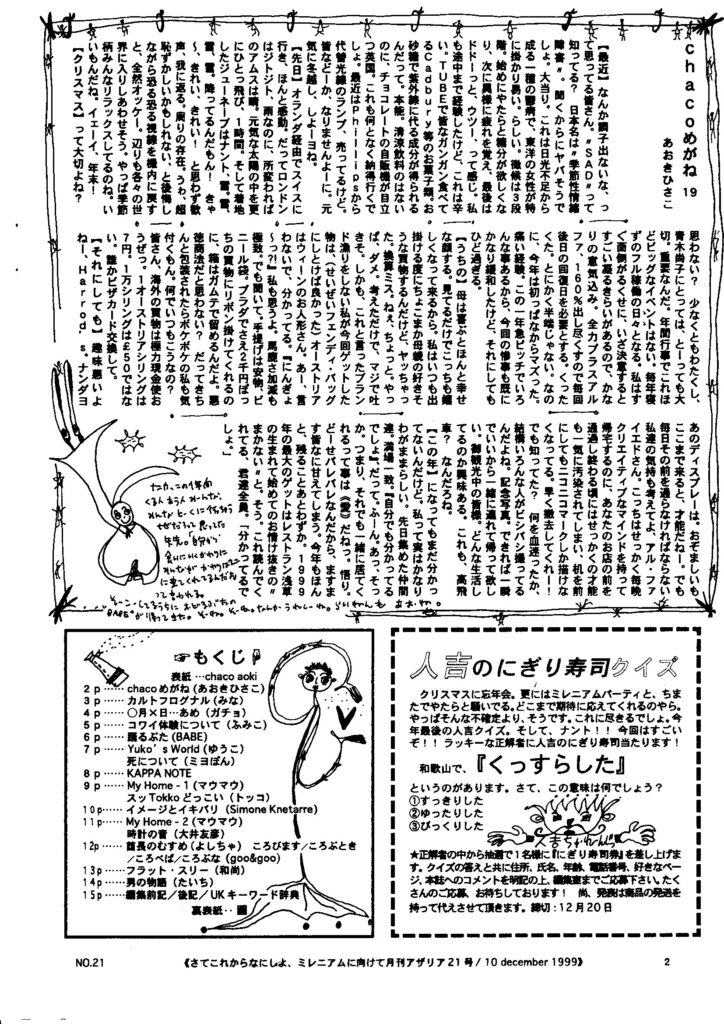 chacoめがね 19
あおきひさこ
【最近】なんか調子出ないな、っ
て思ってる皆さん。〝SAD〟って
知ってる? 日本名は〝季節性情緒
障害〟。聞くからにヤバそうで
しょ。大当り。これは日光不足から
成る一種の鬱病で、東洋の女性が特
に掛かり易い。らしい。徴候は3段
階。始めにやたらと糖分が欲しくな
り、次に異様に疲れを覚え、最後は
ドドーっと、ウツー、って感じ。私
も途中まで経験したけど、これは辛
い。TUBEで皆なガンガン食べて
るCadbury等のお菓子類。お
砂糖で紫外線に代る成分が得られる
んだって。本能。清涼飲料のはない
のに、チョコレートの自販機が目立
つ英国。これも何となく納得行くで
しょ。最近はPhillipsから
代替光線のランプ、売ってるけど。
皆など一か、なりませんよーに。元
気に冬越し、しよーヨね。
【先日】オランダ経由でスイスに
行き、ほんと感動。だってロンドン
はジトジト、雨なのに、所変われば
のアムスは晴。元気な太陽の中を更
にひとっ飛び、1時間。そして着地
したジューネーブはナント、雪、雪、
雪、雪、降ってるんだもん! きゃ
〜、きれい、きれい! と思わず歓
声。我に返る。周りの存在。うわ、超
恥ずかしいかもしれない、と後悔し
ながら恐る恐る視線を機内に戻す
と、全然オッケー。辺りも各々の世
界に入りしあわせそう。やっぱ季節
柄みんなリラックスしてるのね。い
いもんだね。イェーイ、年末!
【クリスマス】って大切よね?
思わない? 少なくともわたくし、
青木尚子にとっては、と一っても大
切。重要なんだ。年間行事でこれほ
どビッグなイベントはない。毎年寝
ずのフル稼働の日々となる。私はす
ぐ面倒がるくせに、いざ決意すると
すごい凝るきらいがあるので、かな
りの意気込み。全力プラスアル
ファ、160%出し尽くすので毎回
後日の回復日を必要とする。くった
くた。とにかく半端じゃない。なの
に、今年は初っぱなからマズった。
痛い経験。この一年急ピッチでいろ
んな事あるから、今回の惨事も既に
かなり緩和したけど、それにしても
ひど過ぎる。
【うちの】母は喜ぶとほんと幸せ
な顔する。見てるだけでこっちも嬉
しくなって来るから。私はいつも出
掛ける度にちょこまか母親の好きそ
うな買物するんだけど、ヤッちゃっ
た。換算ミス。ねえ、ちょっと、やっ
ぱ、ダメ。考えただけで、マジで吐
きそ。しかも、これと言ったブラン
ド漁りをしない私が今回ゲットした
物は、(せいぜいフェンディ・バッグ
にしとけば良かった)オーストリア
はウィーンのお人形さん。あー、言
わないで、分かってる。『にんぎょ
〜っ?!』私も思うよ。馬鹿さ加減も
極致。でも聞いて。手提げは安物、ビ
ニール袋。プラダでさえ2千円ぽっ
ちの買物にリボン掛けてくれるの
に、箱はガムテで留めるんだよ。悪
徳商法だと思わない? だってきち
んと包装されたらボケボケの私も気
付くもん。何でいつもこうなの?
皆さん、海外の買物は極力現金使お
うぜっ。1オーストリアシリングは
7円。1万シリングは£50ではな
い。誰かビザカード交換して。
【それにしても】趣味悪いよ
ね、Harrod's。ナンダヨ
あのディスプレーは。おぞましいも
ここまで来ると、才能だね一。でも
毎日その前を通らなければならない
私達の気持も考えてよ、アル・ファ
イエドさん。こっちはせっかく毎晩
クリエイティブなマインドを持って
帰宅するのに、あなたのお店の前を
通過し終わる頃にはせっかくの才能
も一気に汚染されてしまい、机を前
にしてもニコニコマークしか描けな
くなってる。早く撤去してくれー!
でも知ってた? 何を血迷ったか、
結構いろんな人がピンパシ撮ってる
んだよね。記念写真。できれば一瞬
でいいから一緒に連れて帰って欲し
い。御観光中の皆様。どんな生活し
てるのか興味ある。これも、高飛
車? なんだろね。
【この年】になってもまだ分かっ
てないんだけど、私って実はかなり
わがままらしい。先日集めた仲間
達、満場一致。『自分でも分かってる
でしょ。』だって。ふーん。あっ、そっ
か。つまり、それでも一緒に居てく
れるって事は《愛》だねっ。悟り。
ど一せバレバレなんだから、ますま
す皆なに甘えてしまう。今年もほん
と、残ることあとわずか。1999
年の最大のゲットはレストラン浅草
の生まれて始めてのお情け抜きの〝
まかない〟と、そう、これ読んでく
れてる、君達全員。『分かってるで
しょ。』
もくじ
表紙‥‥chaco aoki
2p‥‥‥chacoめがね(あおきひさこ)
3p‥‥‥カルトフログナル(みな)
4p‥‥‥〇月×日…あめ(ガチョ)
5p‥‥‥コワイ体験について(ふみこ)
6p‥‥‥踊るぶた(BABE)
7p‥‥‥Yuko's World(ゆうこ)
死について(ミヨぽん)
8p‥‥‥KAPPA NOTE
9p‥‥‥My Home - 1(マウマウ)
スッTokkoどっこい(トッコ)
10p‥‥‥イメージとイキバリ(Simone Knetarre)
11p‥‥‥My Home - 2(マウマウ)
時計の音(大井友彦)
12p‥‥‥酋長のむすめ(よしちゃ) ころびます/ころぶとき
/ころべば/ころぶな(goo&goo)
13p‥‥‥フラット・スリー(和尚)
14p‥‥‥男の物語(たいち)
15p‥‥‥編集前記/後記/UKキーワード辞典
裏表紙‥‥
人吉のにぎり寿司クイズ
クリスマスに忘年会。更にはミレニアムパーティと、ちま
たでやたらと騒いでる。どこまで期待に応えてくれるのやら。
やっぱそんな不確定より、そうです。これに尽きるでしょ。今
年最後の人吉クイズ。そして、ナント!! 今回はすごい
ぞ!! ラッキーな正解者に人吉のにぎり寿司当たります!
和歌山で、『くっすらした』
というのがあります。さて、この意味は何でしょう?
①すっきりした
②ゆったりした
③びっくりした
★正解者の中から抽選で1名様に『にぎり寿司券』を差し上げま
す。クイズの答えと共に住所、氏名、年齢、電話番号、好きなペー
ジ、本誌へのコメントを明記の上、編集室までご応募下さい。たく
さんのご応募、お待ちしております! 尚、発表は商品の発送を
持って代えさせて頂きます。締切:12月20日
NO.21
《さてこれからなにしよ、ミレニアムに向けて月刊アザリア21号/10 december 1999》
2